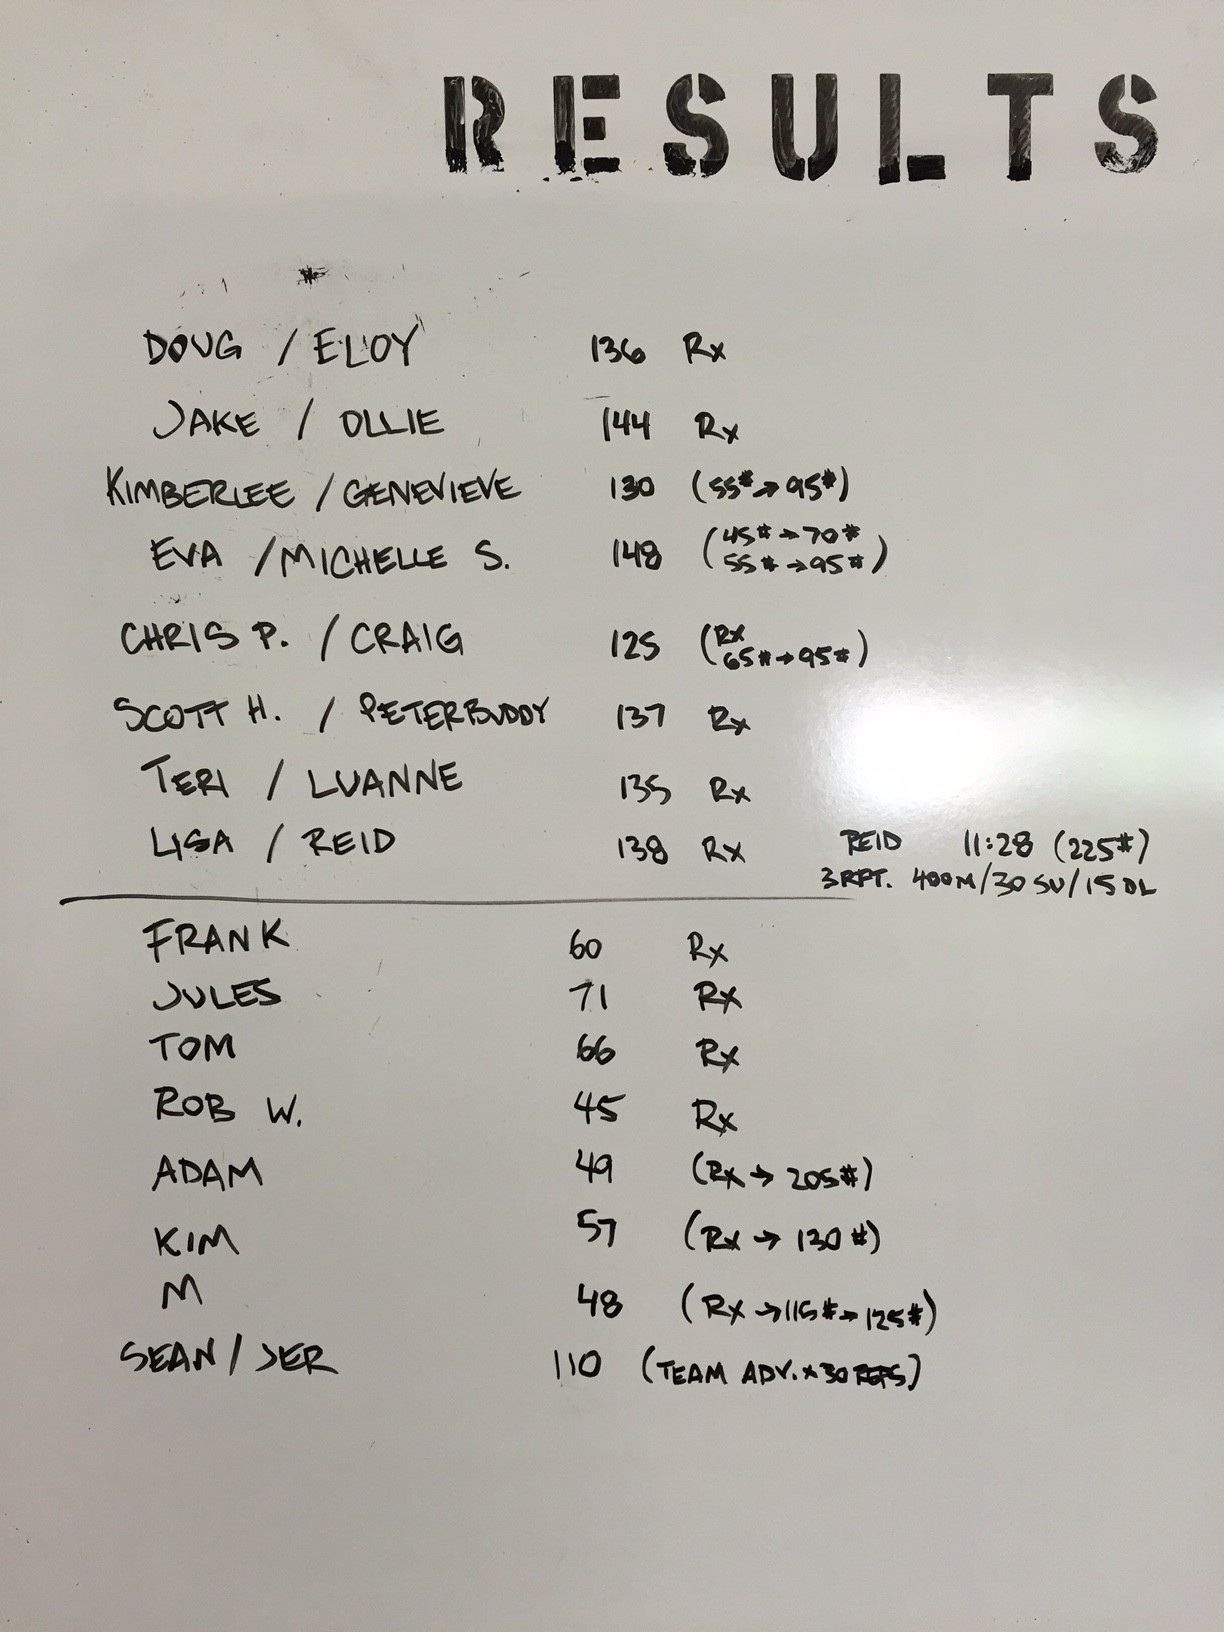 RESULTS
DOUG / ELOY 136 Rx
JAKE / OLLIE 144 Rx
KIMBERLEE / GENEVIEVE 130 (55#→95#)
EVA / MICHELLE S. 148 (45#→70#
55#→95#)
CHRIS P. / CRAIG 125 (RX
65#→95#)
SCOTT H. / PETERBUDDY 137 Rx
TERI / LUANNE 135 Rx
LISA / REID 138 Rx REID 11:28 (225#)
3 RFT. 400M/30 SU/15 DL
FRANK 60 Rx
JULES 71 Rx
TOM 66 Rx
ROB W. 45 Rx
ADAM 49 (Rx → 205#)
KIM 57 (Rx → 130#)
M 48 (Rx →115#→125#)
SEAN / JER 110 (TEAM ADV. × 30 REPS)